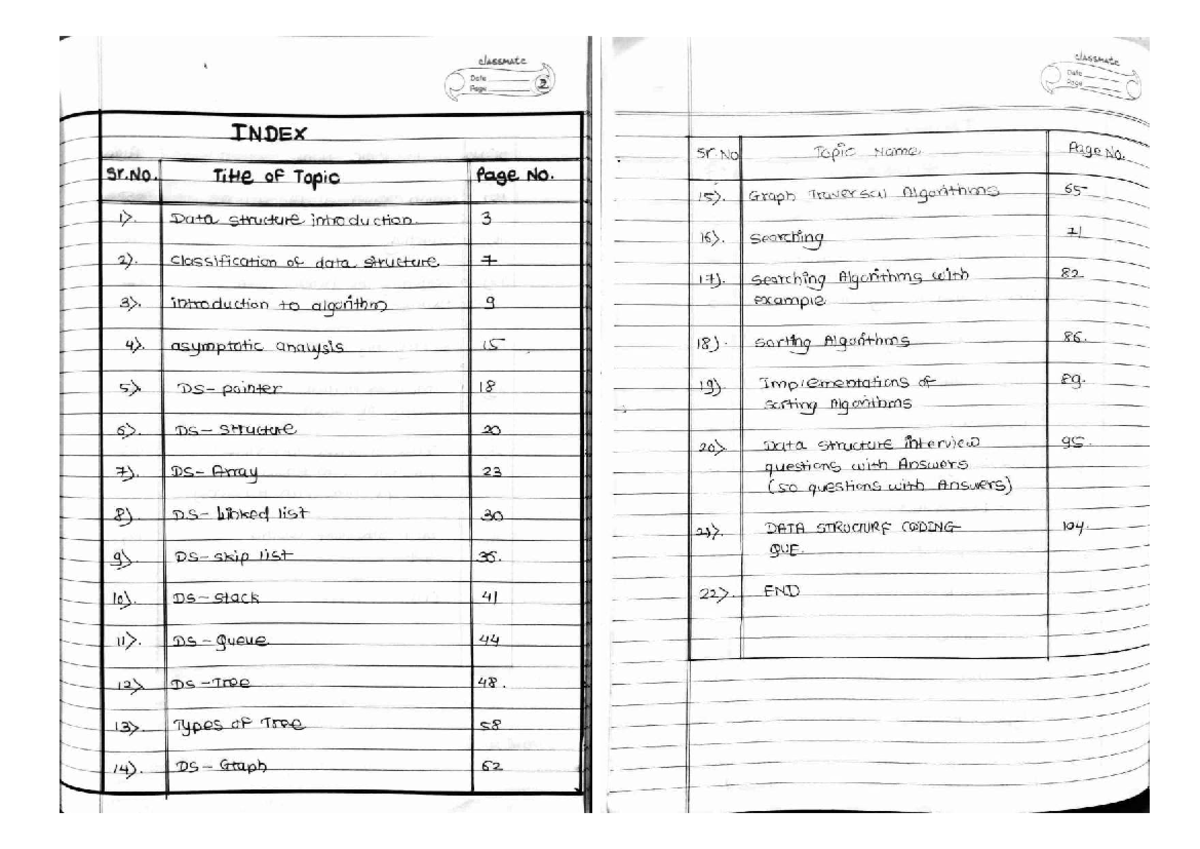 classmate
Date
Page 2
INDEX
Sr.No. Title of Topic Page No.
1). Data structure introduction. 3
2). classification of data structure. 7
3). introduction to algorithm 9
4). asymptotic analysis 15
5). DS- pointer 18
6). DS- structure 20
7). DS- Array 23
8). DS- Linked list 30
9). DS- skip list 36.
10). DS- stack 41
11). DS- Queue. 44
12). DS -Tree 48.
13). Types of Tree 58
14). DS- Graph 62
classmate
Date
Page
Sr.No Topic Name. Page No.
15). Graph Traversal Algorithms 65
16). Searching 71
17). Searching Algorithms with 82
example
18). Sorting Algorithms 86.
19). Implementations of 89.
sorting Algorithms
20). Data structure interview 95.
questions with Answers
(50 questions with Answers)
21). DATA STRUCTURE CODING 104.
QUE.
22). END